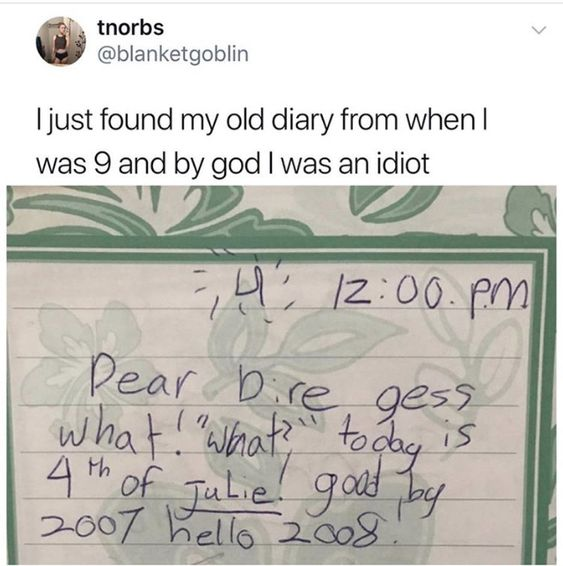 tnorbs
@blanketgoblin
I just found my old diary from when I
was 9 and by god I was an idiot
4 12:00. pm
Dear Dire gess
what! "what?" today is
4th of Julie! good by
2007 hello 2008!